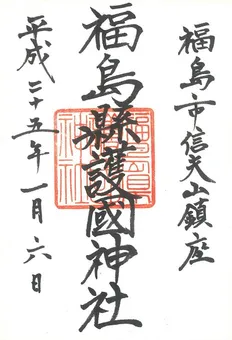 福島市信夫山鎮座
福島縣護國神社
平成二十五年一月六日